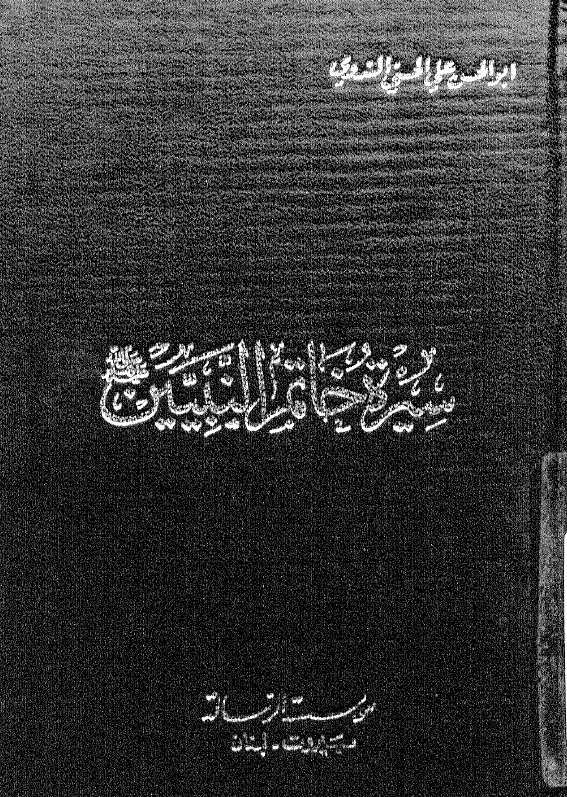 ابو الحسن علي الحسني الندوي
سِيرَة خَاتَم النَّبِيِّين ﷺ
مؤسسة الرسالة
بيروت - لبنان